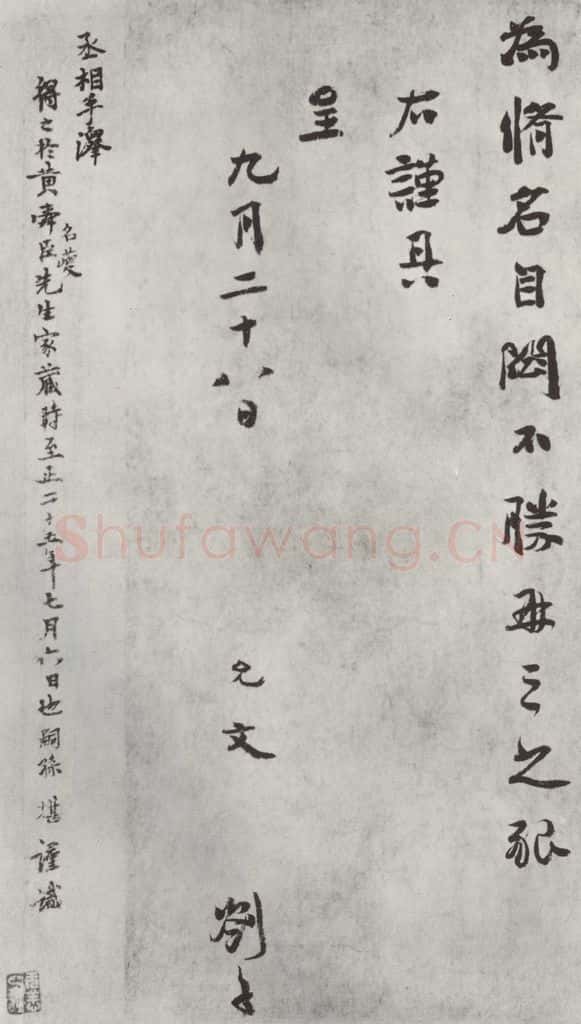 為脩名自閟不勝再三之豤
右謹具
呈
九月二十八日 允文 劄子
丞相手澤
得之於黃舜臣名夔先生家藏時至正二十五年七月六日也嗣孫堪謹識
Shufawang.CN